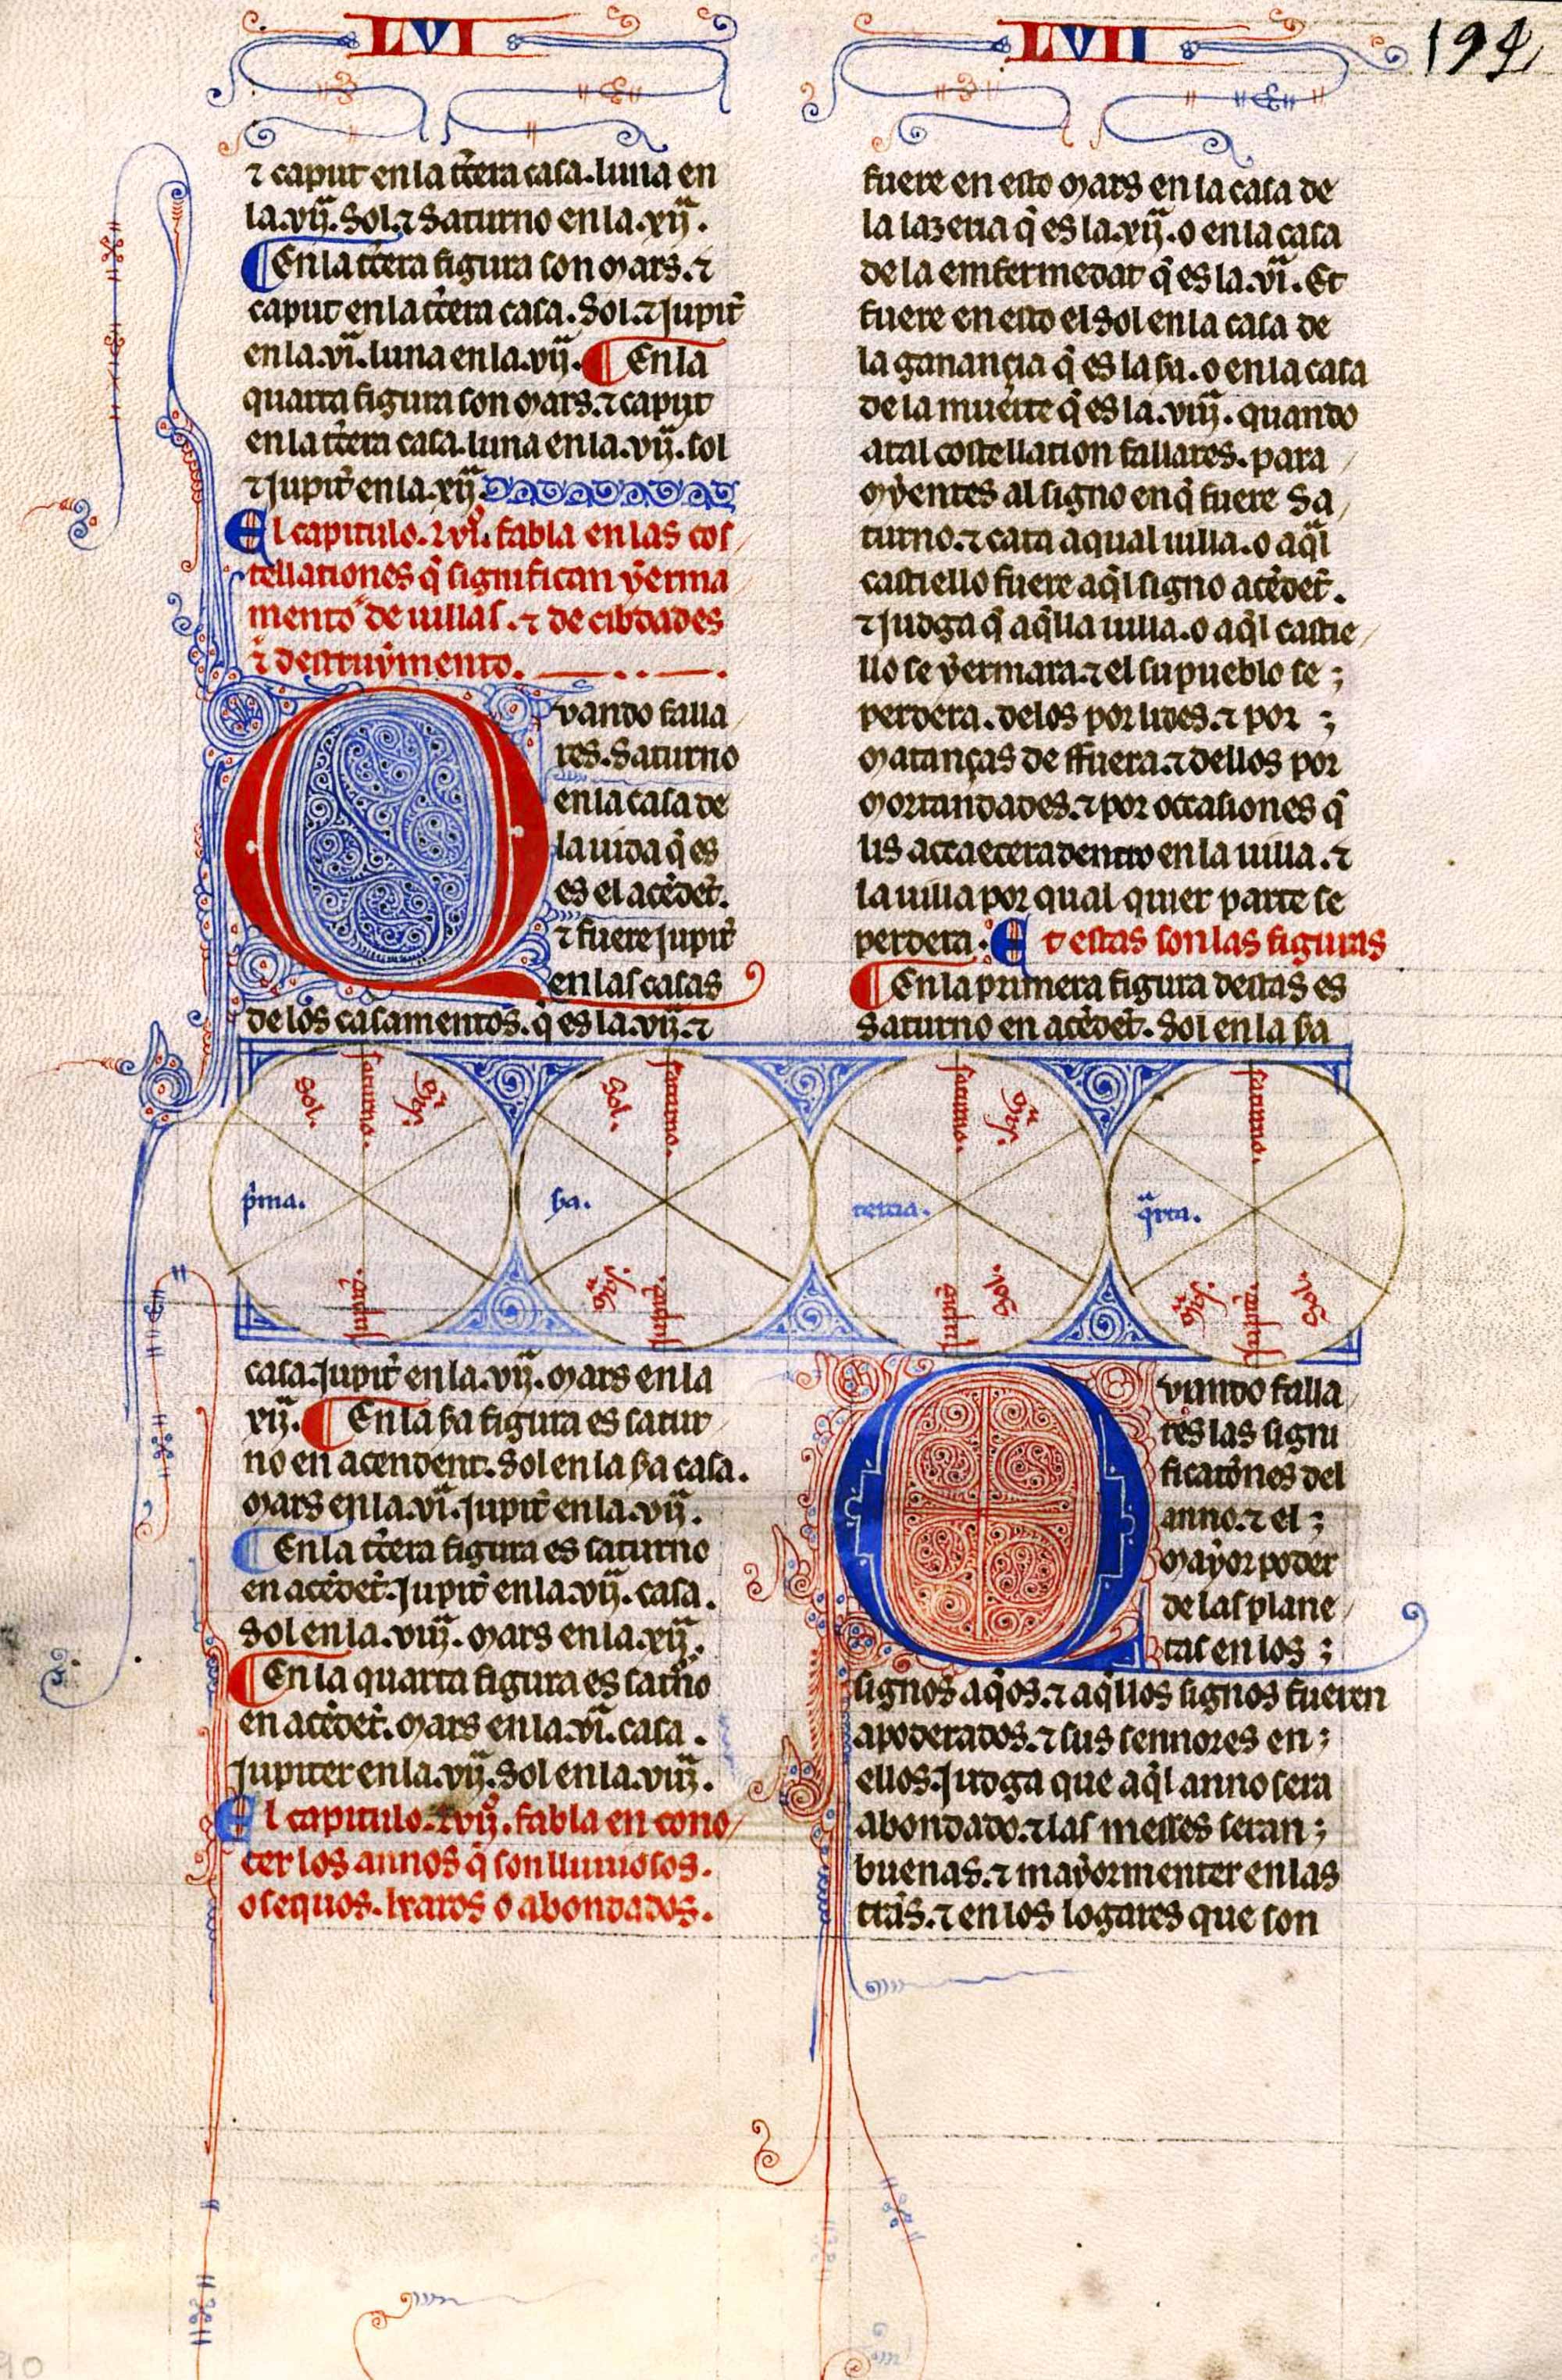 LVI
LVII
194
⁊ caput en la t̉cera casa. luna en
la .vij.ª Sol. ⁊ Saturno en la .xij.ª
¶ En la t̉cera figura son Mars. ⁊
caput en la t̉cera casa. Sol. ⁊ Jupit̉
en la .vi.ª luna en la .vij.ª ¶ En la
quarta figura son Mars. ⁊ caput
en la t̉cera casa. luna en la .vij.ª sol
⁊ Jupit̉ en la .xij.ª
El capitulo. lvi.º fabla en las cos/
tellationes q̉ significan yerma
mento de uillas. ⁊ de cibdades
⁊ destruymento.
Quando falla/
res. Saturno
en la casa de
la uida q̉ es
es el acēdēt.
⁊ fuere Jupit̉
en las casas
de los casamentos. q̉ es la .vij.ª ⁊
fuere en esto Mars en la casa de
la lazeria q̉ es la .xij.ª o en la casa
de la emfermedat q̉ es la .vi.ª Et
fuere en esto el Sol en la casa de
la ganançia q̉ es la ẞa. o en la casa
de la muerte q̉ es la .viij.ª quando
atal costellation fallares. para/
Myentes al signo en q̉ fuere Sa/
turno. ⁊ cata a qual uilla. o a q̄l
castiello fuere aq̄l signo acēdēt.
⁊ judga q̉ aq̄lla uilla. o aq̄l castie/
llo se yermara. ⁊ el su pueblo se ;
perdera. delos por lides. ⁊ por ;
Matanças de ffuera. ⁊ dellos por
Mortandades. ⁊ por occasiones q̉
lis accaecera dentro en la uilla. ⁊
la uilla por qual quier parte se
perdera. Et estas son las figuras
¶ En la primera figura destas es
Saturno en acēdēt. Sol en la ẞa
Sol.
saturno.
Mars.
p̉ma.
jupit̉.
Sol.
saturno.
ẞa.
Mars.
jupit̉.
saturno.
Mars.
tercia.
jupit̉.
Sol.
saturno.
q̉rta.
Mars.
jupit̉.
Sol.
casa. Jupit̉ en la .vij.ª Mars en la
xij.ª ¶ En la ẞa figura es satur/
no en acendent. Sol en la ẞa casa.
Mars en la .vi.ª Jupit̉ en la .vij.ª
¶ En la t̉cera figura es saturno
en acēdēt. Jupit̉ en la .vij.ª casa.
Sol en la .viij.ª Mars en la .xij.ª
¶ En la quarta figura es sat̉no
en acēdēt. Mars en la .vi.ª casa.
Jupiter en la .vij.ª Sol en la .viij.ª
El capitulo. lvij.º fabla en cono/
cer los annos q̉ son lluuiosos.
o sequos. lxatos o abondados.
Quando falla/
res las signi
ficatōnes del
anno. ⁊ el ;
Mayor poder
de las plane/
tas en los ;
signos aq̉os. ⁊ aq̄llos signos fueren
apoderados. ⁊ sus sennores en ;
ellos. Judga que aq̄l anno sera
abondado. ⁊ las messes seran ;
buenas. ⁊ mayormenter en las
t̉ras. ⁊ en los logares que son